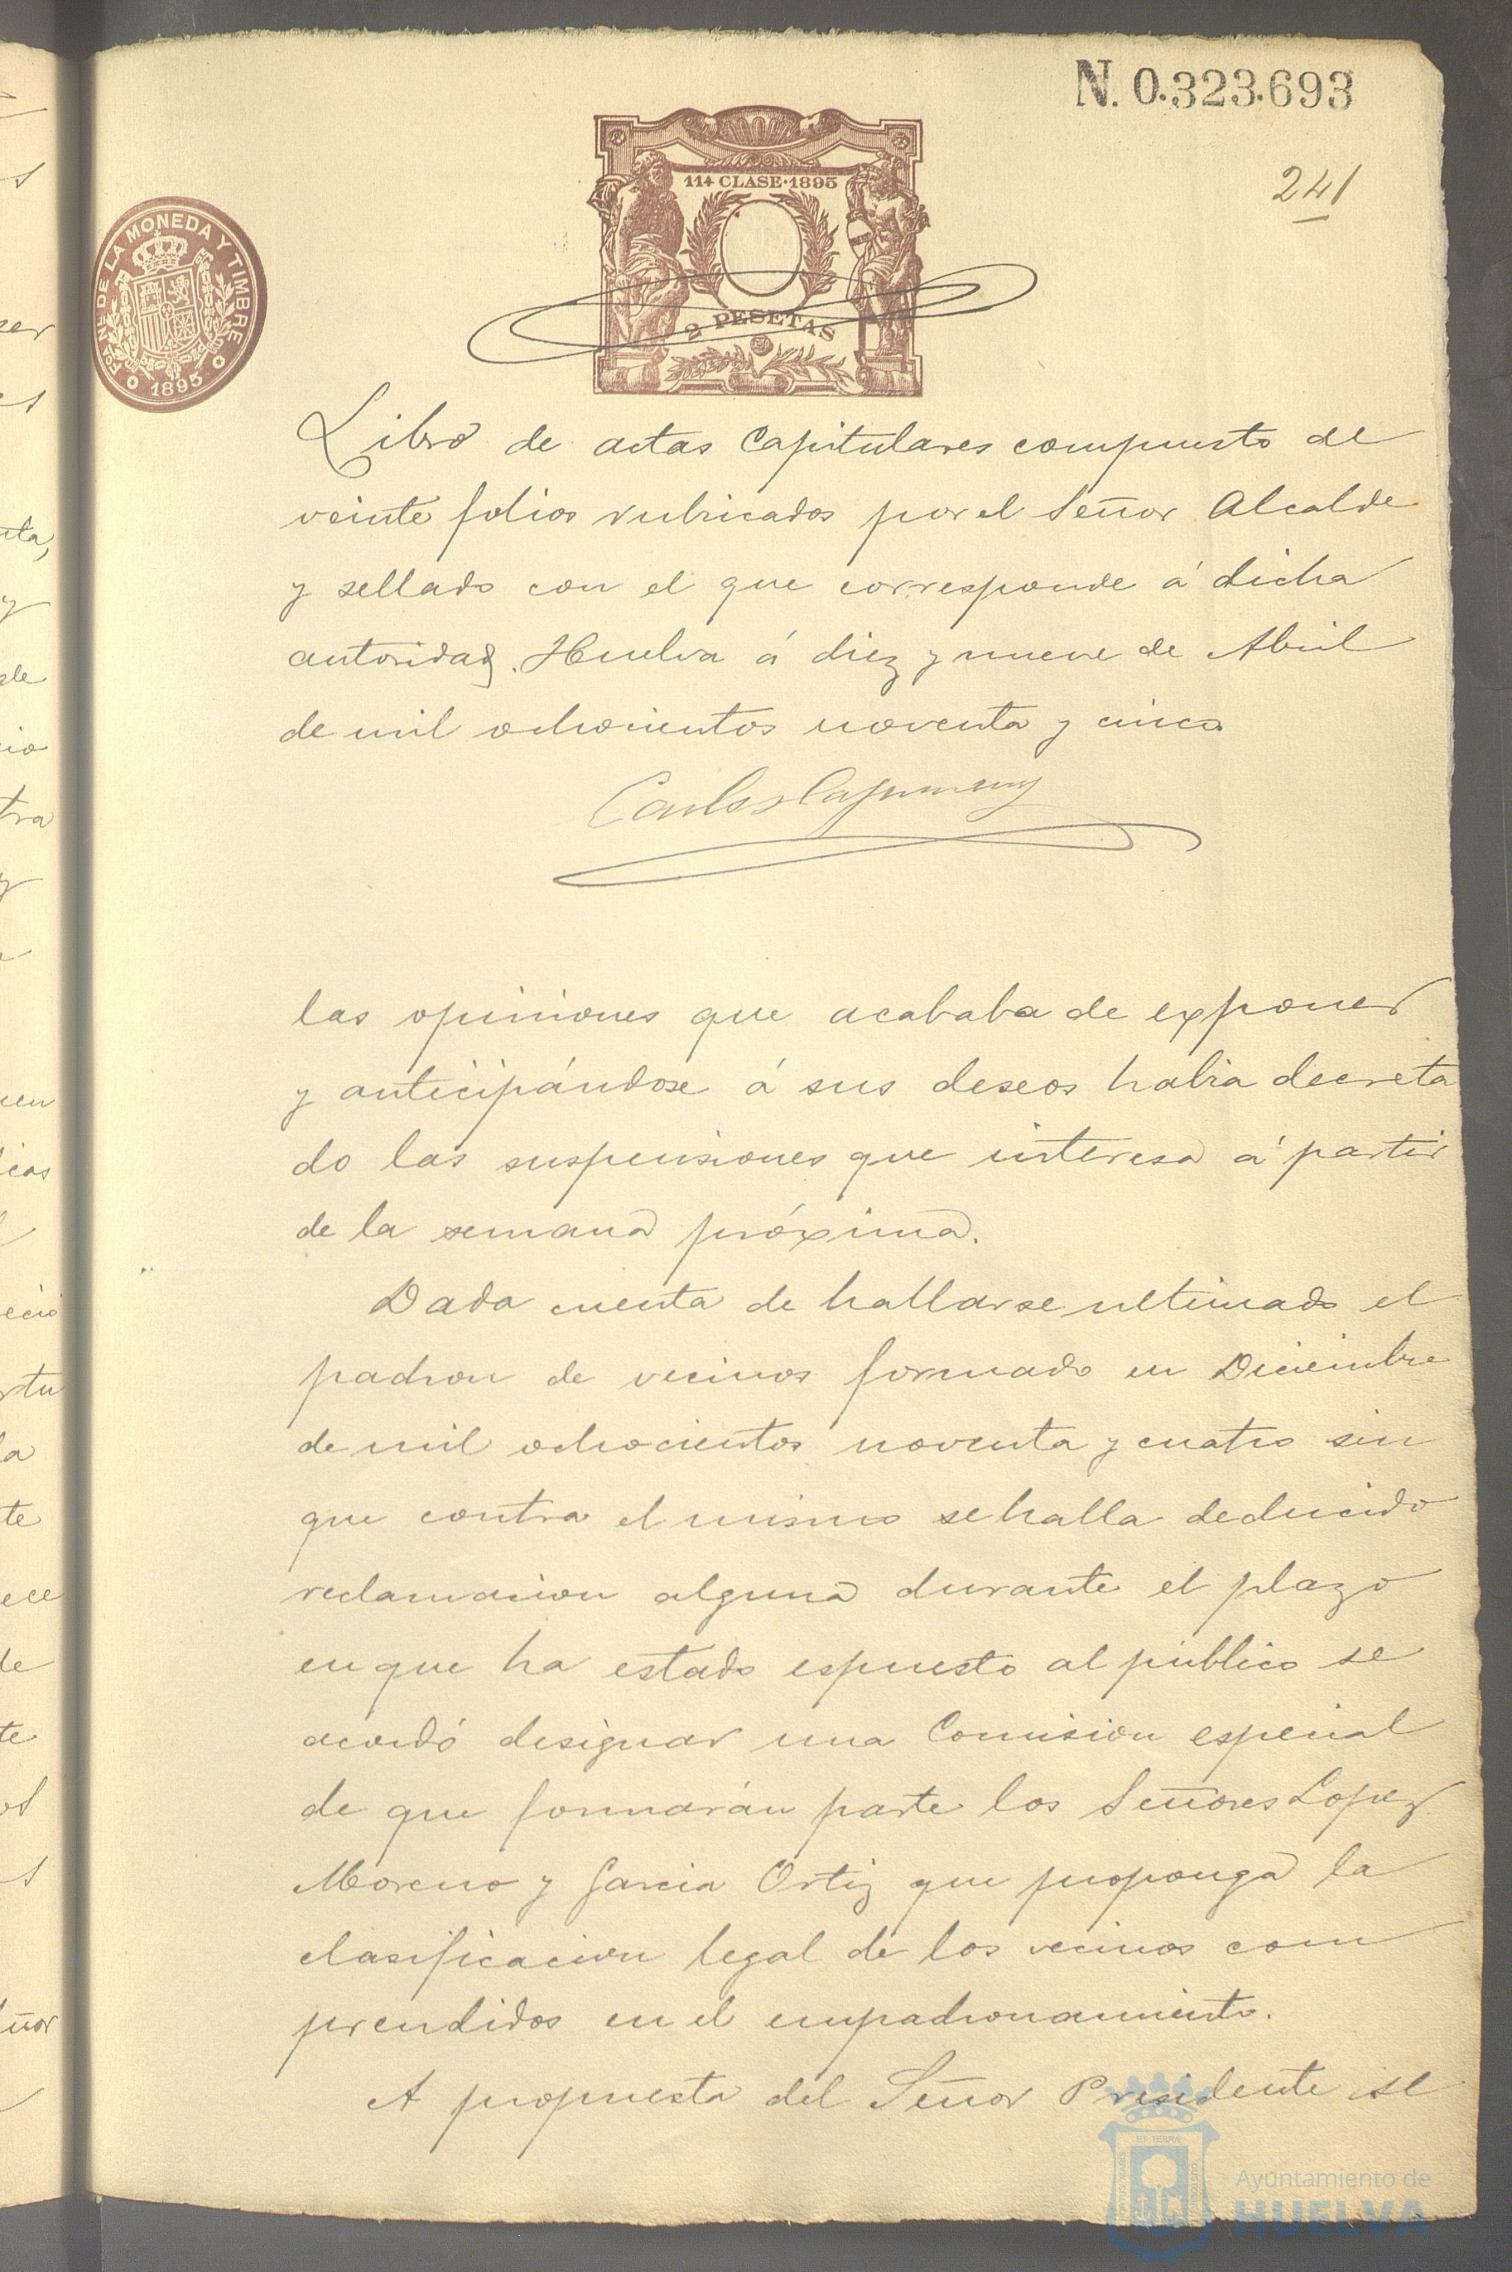 N. 0.323.693
241
11ª CLASE·1895
2 PESETAS
FCA. NAL. DE LA MONEDA Y TIMBRE
1895
Libro de actas Capitulares compuesto de
veinte folios rubricados por el Señor Alcalde
y sellado con el que corresponde á dicha
autoridad. Huelva á diez y nueve de Abril
de mil ochocientos noventa y cinco
Carlos
las opiniones que acababa de exponer
y anticipándose á sus deseos habia decreta
do las suspensiones que interesa á partir
de la semana próxima.
Dada cuenta de hallarse ultimado el
padron de vecinos formado en Diciembre
de mil ochocientos noventa y cuatro sin
que contra el mismo se halla deducido
reclamacion alguna durante el plazo
en que ha estado espuesto al público se
acordó designar una Comision especial
de que formarán parte los Señores Lopez
Moreno y Garcia Ortiz que proponga la
clasificacion legal de los vecinos com
prendidos en el empadronamiento.
A propuesta del Señor Presidente se
Ayuntamiento de
HUELVA